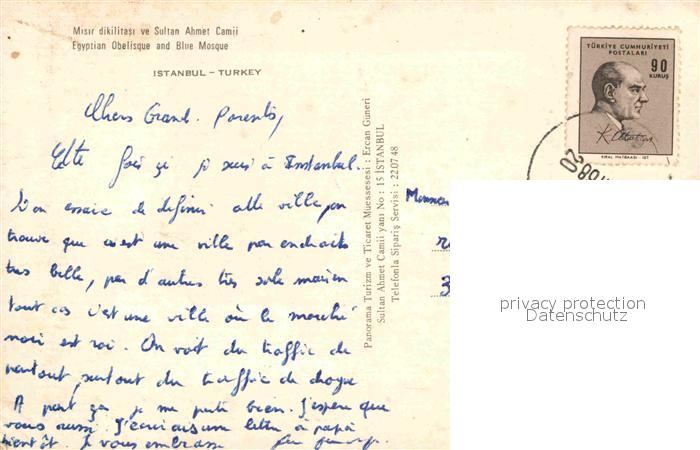 Mısır dikilitaşı ve Sultan Ahmet Camii
Egyptian Obelisque and Blue Mosque
ISTANBUL - TURKEY
TÜRKİYE CUMHURİYETİ
POSTALARI
90
KURUŞ
K. Atatürk
KIRAL MATBAASI - IST
Chers Grand-Parents,
Cette fois çi je suis à Instanbul.
L'on essaie de definir cette ville, on
trouve que c'est une ville par endroits
tres belle, par d'autres très sale mais en
tout cas c'est une ville où le marché
noir est roi. On voit du traffic de
partout, surtout du traffic de drogue
A part ça je me porte bien. J'espere que
vous aussi. J'écrirais une lettre à papa
bientôt. Je vous embrasse
Panorama Turizm ve Ticaret Müessesesi : Ercan Güneri
Sultan Ahmet Camii yanı No : 15 İSTANBUL
Telefonla Sipariş Servisi : 22 07 48
Monsieur
3
privacy protection
Datenschutz